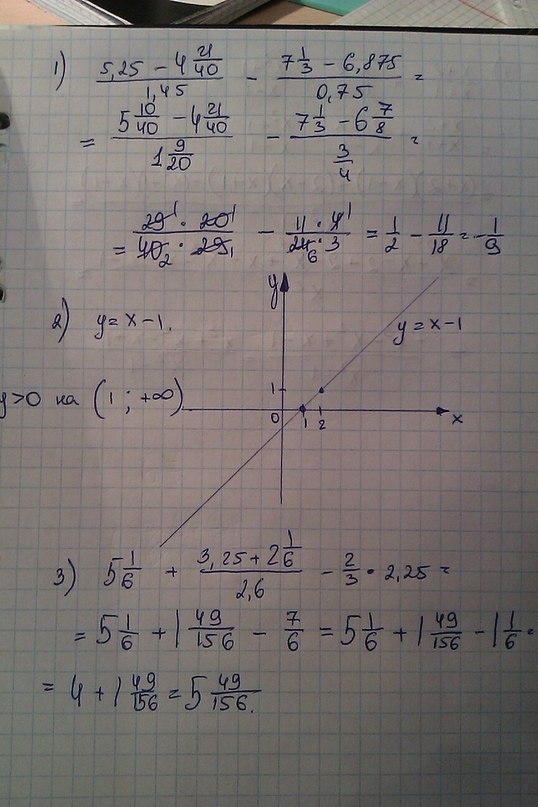 1) (5,25 − 4 21/40)/1,45 − (7 1/3 − 6,875)/0,75 =
= (5 10/40 − 4 21/40)/(1 9/20) − (7 1/3 − 6 7/8)/(3/4) =
= (29¹ · 20¹)/(40₂ · 29₁) − (11 · 4¹)/(24₆ · 3) = 1/2 − 11/18 = −1/9
2) y = x − 1.
y
y = x − 1
y>0 на (1 ; +∞)
1
0 1 2 x
3) 5 1/6 + (3,25 + 2 1/6)/2,6 − 2/3 · 2,25 =
= 5 1/6 + 1 49/156 − 7/6 = 5 1/6 + 1 49/156 − 1 1/6 =
= 4 + 1 49/156 = 5 49/156.